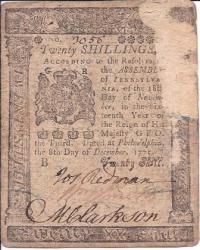 No. 7056
Twenty SHILLINGS.
ACCORDING to the Resolves
G R of the ASSEMBLY
of PENNSYLVA-
NIA, of the 18th
Day of Novem-
ber, in the
Year of
the Reign of His
Majesty GEO.
the Third. Dated at Philadelphia,
the 8th Day of December,
B Twenty Shill.
Jos Redman
M Clarkson